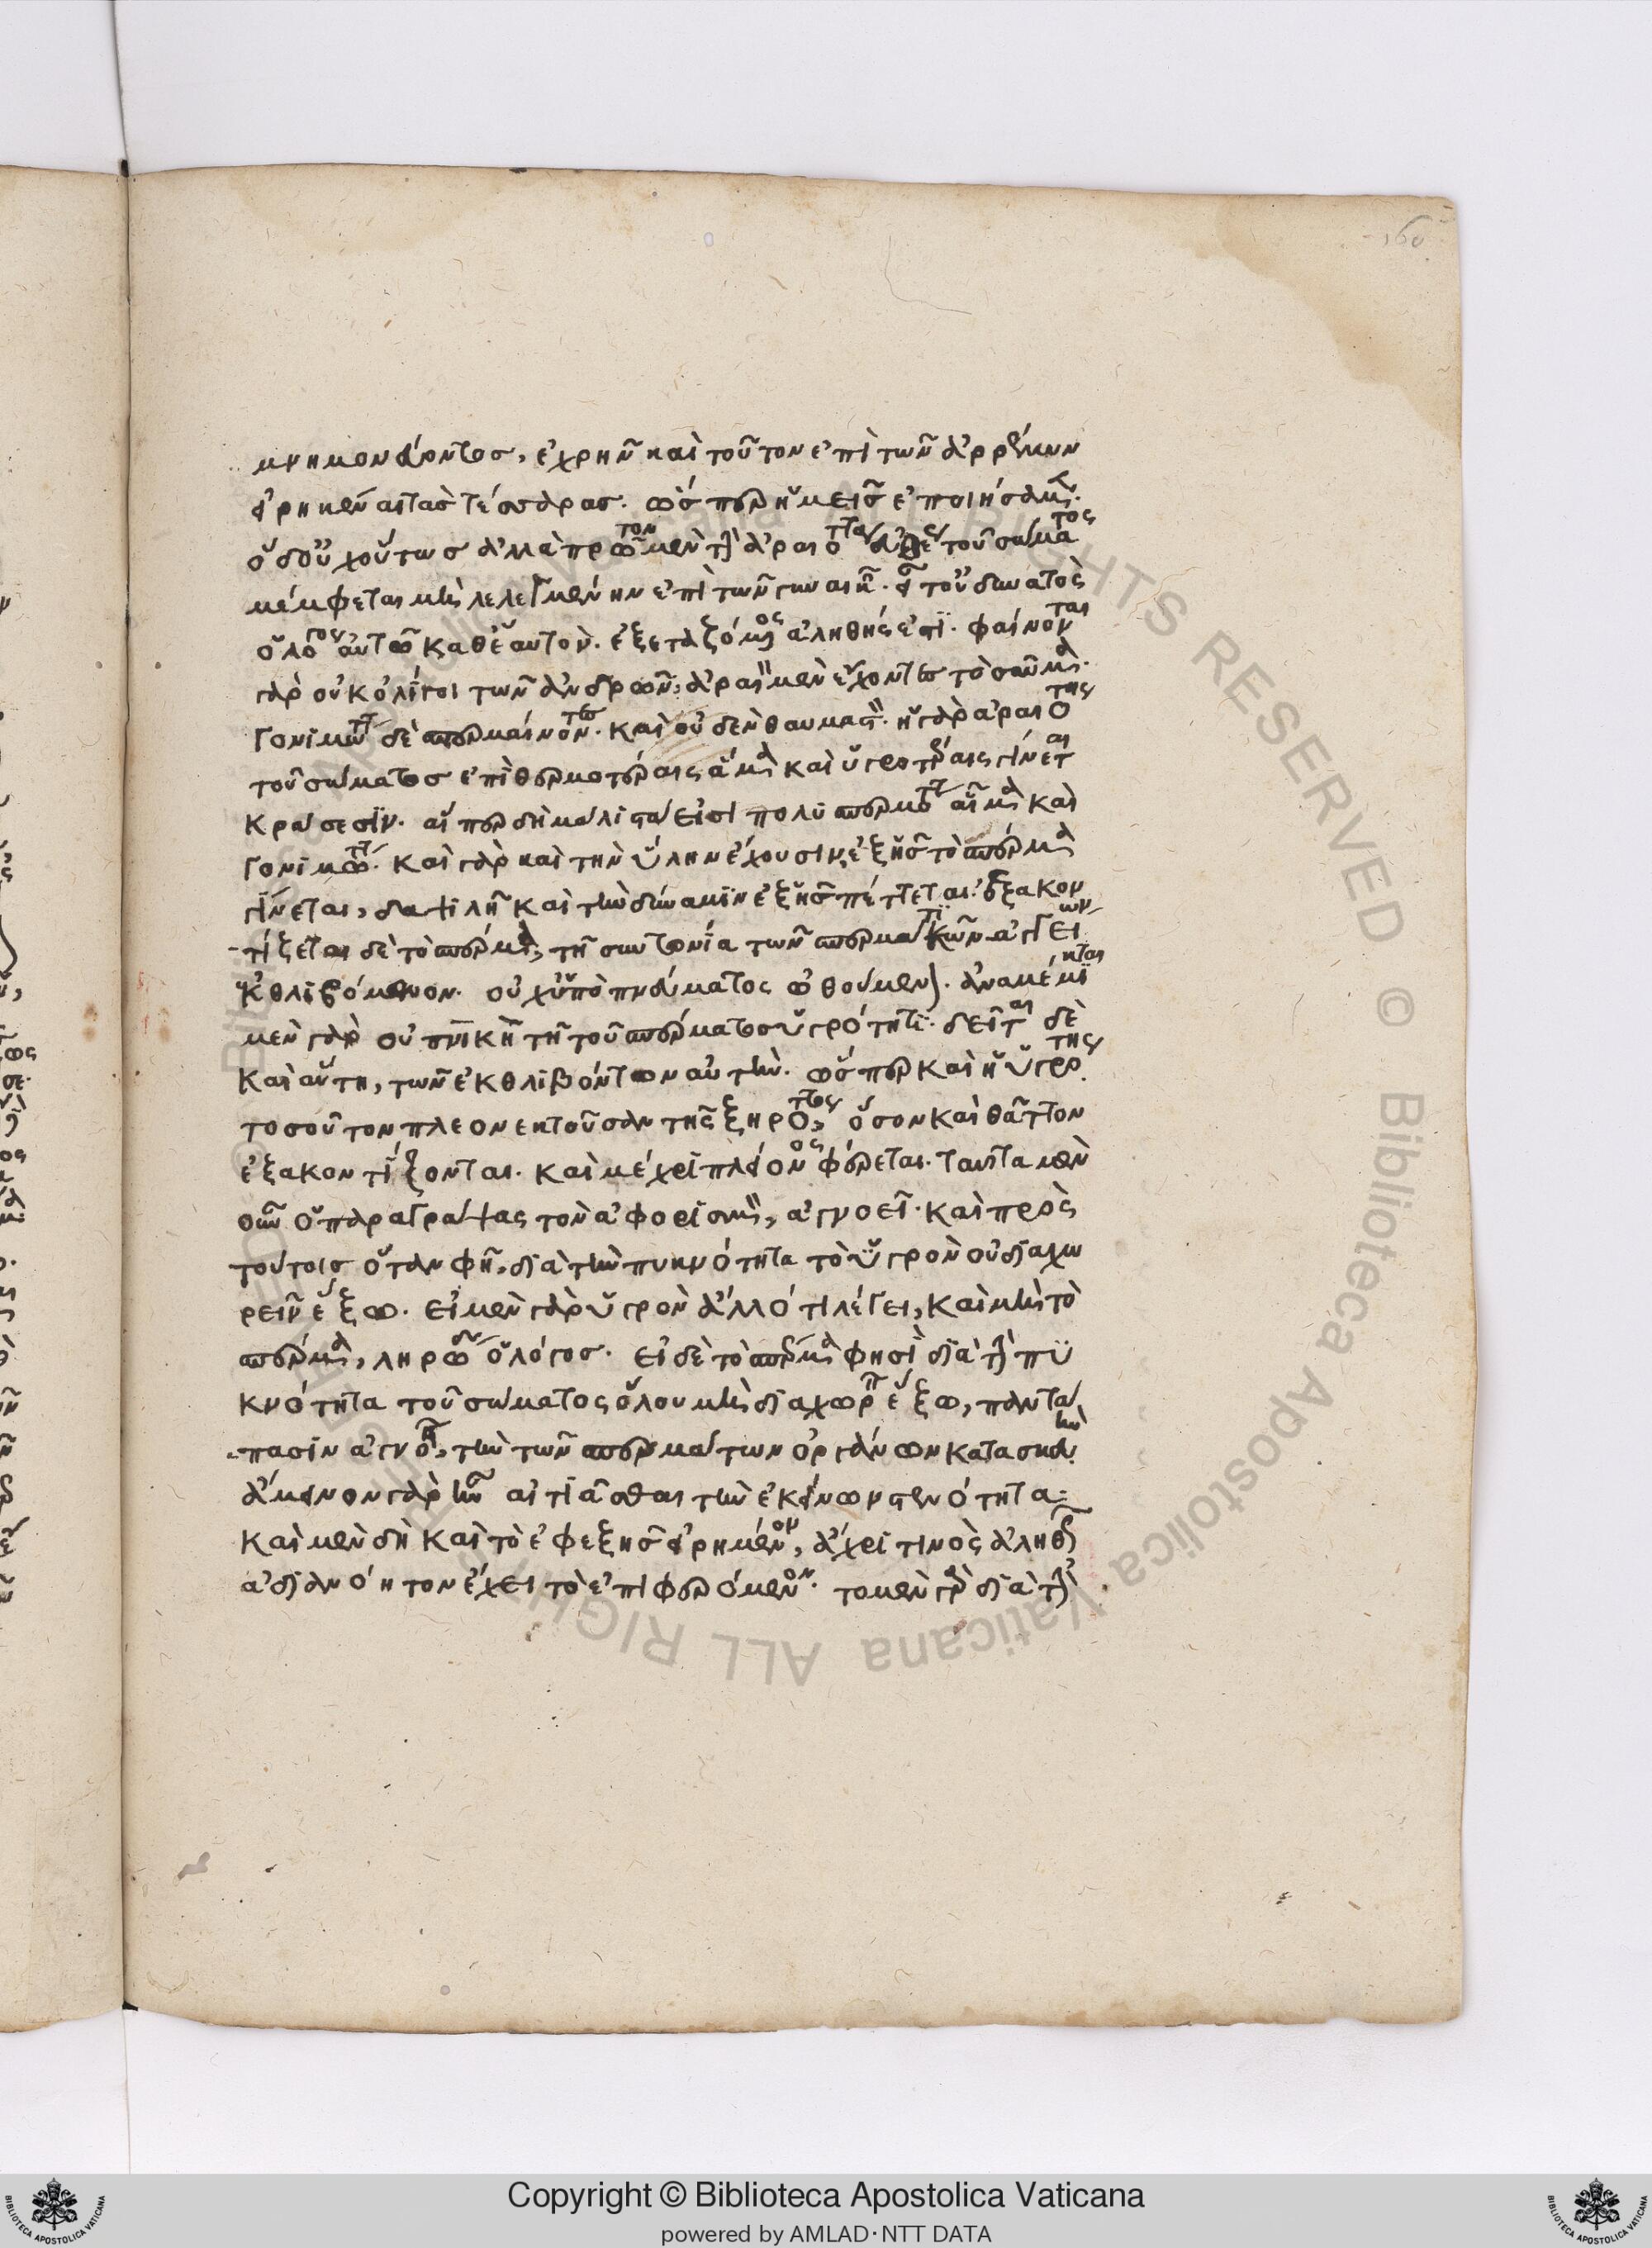 160
μνημονεύοντος, ἐχρῆν καὶ τοῦτον ἐπὶ τῶν ἀρρένων
εἰρηκέναι τὰς τέσσαρας. ὥσπερ ἡμεῖς ἐποιήσαμεν.
ὁ δ' οὐχ οὕτως ἀλλὰ πρῶτον μὲν τὴν ἀραιότητα τοῦ σώματος
μέμφεται μὴ λελεγμένην ἐπὶ τῶν γυναικῶν. εἶτ' οὐδ' αὐτὸς
ὁ λόγος αὐτῶ καθ' ἑαυτὸν ἐξεταζόμενος ἀληθής ἐστι. φαίνονται
γὰρ οὐκ ὀλίγοι τῶν ἀνδρῶν, ἀραιὸν μὲν ἔχοντες τὸ σῶμα.
γονιμώτατοι δὲ σπερμαίνοντες. καὶ οὐδὲν θαυμαστόν. ἡ γὰρ ἀραιότης
τοῦ σώματος ἐπὶ θερμοτέραις ἅμα καὶ ὑγροτέραις γίνεται
κράσεσιν. αἵπερ δὴ μάλιστα εἰσὶ πολυσπερμόταται ἅμα καὶ
γονιμώταται. καὶ γὰρ καὶ τὴν ὕλην ἔχουσιν, ἐξ ἧς τὸ σπέρμα
γίνεται, δαψιλῆ καὶ τὴν δύναμιν ἐξ ἧς πέττεται. ἐξακον
τίζεται δὲ τὸ σπέρμα, τῆ συντονία τῶν σπερματικῶν ἀγγείων
ἐκθλιβόμενον. οὐχ ὑπὸ πνεύματος ὠθούμενον. ἀναμέμικται
μὲν γὰρ οὐσία πνευματικὴ τῆ τοῦ σπέρματος ὑγρότητι. δεῖται δὲ
καὶ αὕτη, τῶν ἐκθλιβόντων αὐτήν. ὥσπερ καὶ ἡ ὑγρότης
τοσοῦτον πλεονεκτοῦσαν τῆς ξηρότητος, ὅσον καὶ θᾶττον
ἐξακοντίζονται. καὶ μέχρι πλείονος φέρεται. ταῦτα μὲν
οὖν ὁ παραγράψας τὸν ἀφορισμόν, ἀγνοεῖ. καὶ πρὸς
τούτοις ὅταν φῆ, διὰ τὴν πυκνότητα τὸ ὑγρὸν οὐ διαχω
ρεῖν ἔξω. εἰ μὲν γὰρ ὑγρὸν ἄλλό τι λέγει, καὶ μὴ τὸ
σπέρμα, ληρώδης ὁ λόγος. εἰ δὲ τὸ σπέρμα φησὶ διὰ τὴν πυ
κνότητα τοῦ σώματος ὅλου μὴ διαχωρεῖν ἔξω, παντά
πασιν ἀγνοεῖ, τὴν τῶν σπερμάτων ὀργάνων κατασκευήν.
ἄμεινον γὰρ ἦν αἰτιᾶσθαι τὴν ἐκείνων στενότητα:
καὶ μὲν δὴ καὶ τὸ ἐφεξῆς εἰρημένον, ἄχρι τινὸς ἀληθὲς
ἀδιανόητον ἔχει τὸ ἐπιφερόμενον. τὸ μὲν γὰρ διὰ τὴν
Copyright © Biblioteca Apostolica Vaticana
powered by AMLAD·NTT DATA